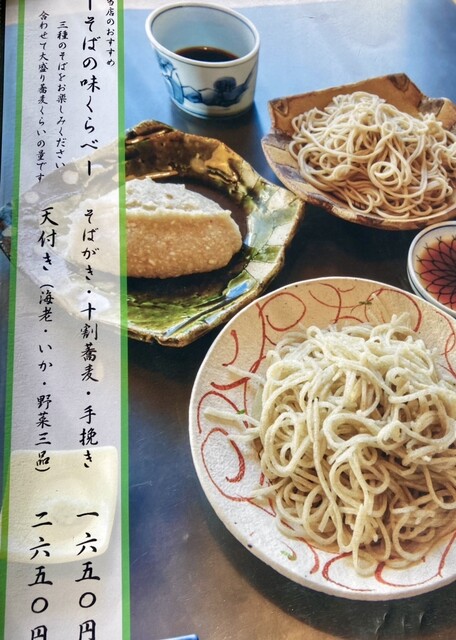 当店のおすすめ
ーそばの味くらべー
三種のそばをお楽しみください
合わせて大盛り蕎麦くらいの量です
そばがき・十割蕎麦・手挽き 一六五〇円
天付き・（海老・いか・野菜三品） 二六五〇円